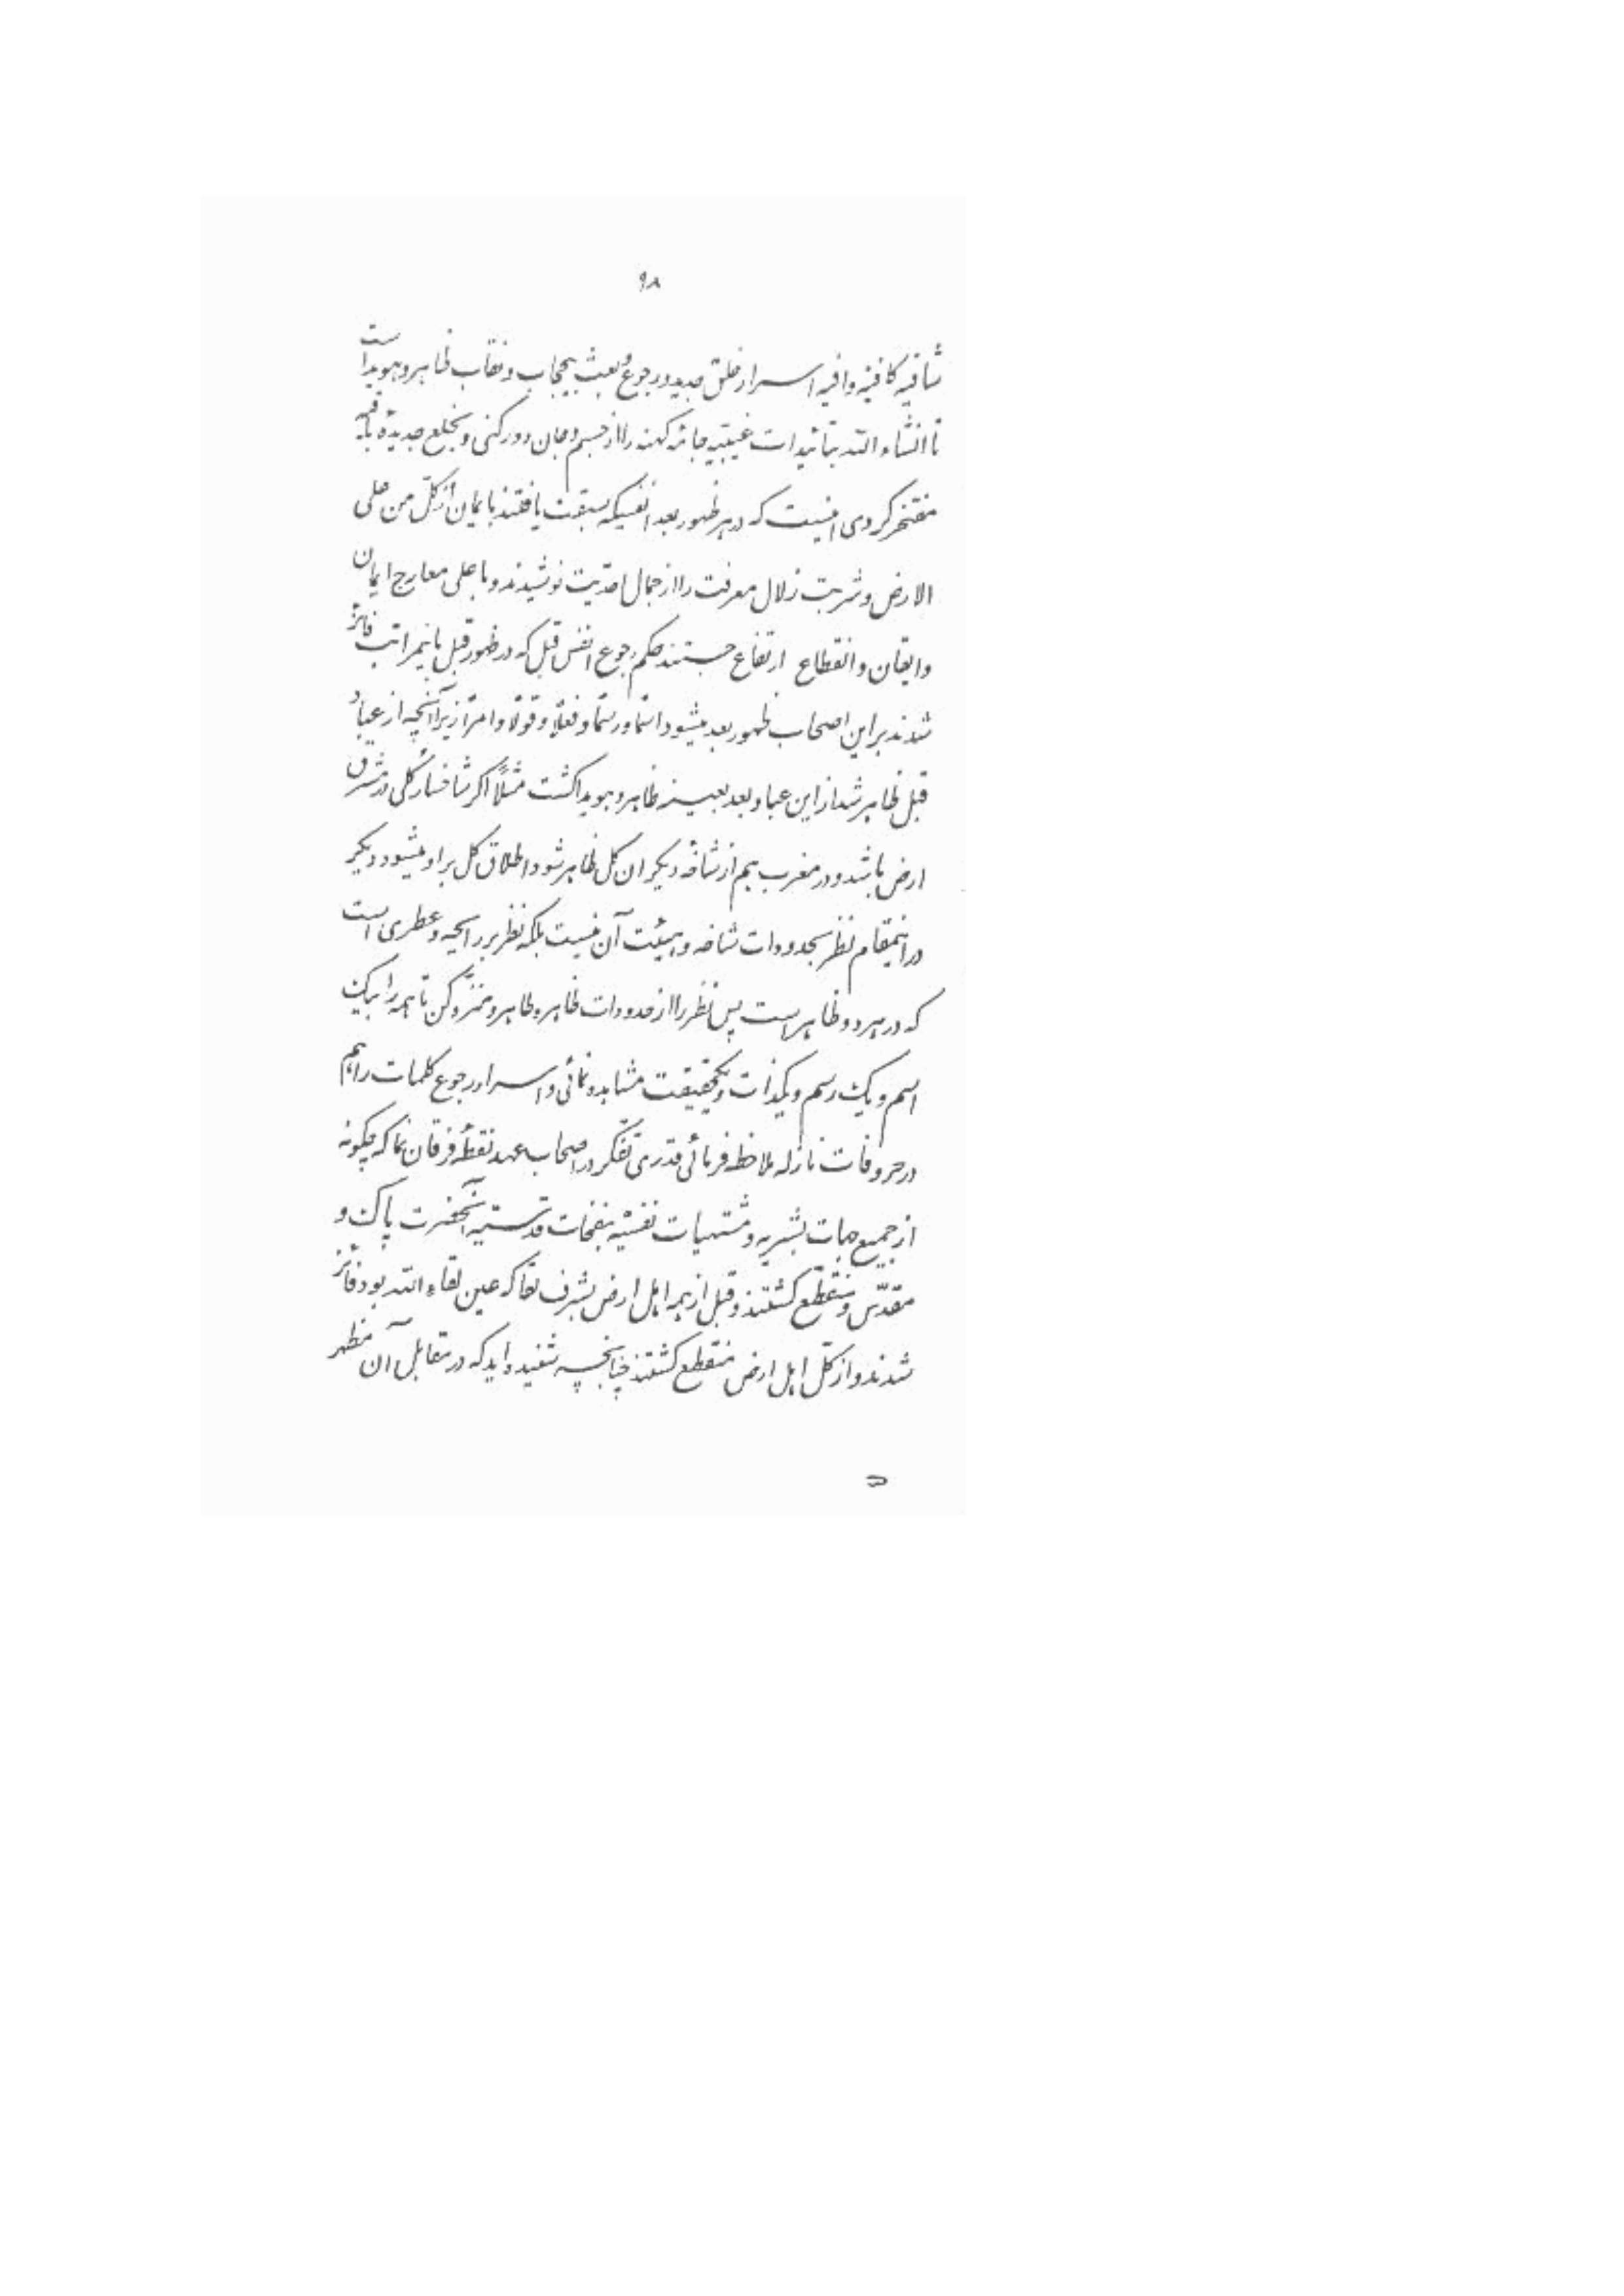 ۹۸
شافیه کافیه وافیه اسرار خلق جدید و رجوع و بعث بیحجاب و نقاب ظاهر و هویدا است
تا انشاء الله بتائیدات غیبیّه جامهٔ کهنه را از جسم و جان دور کنی و بخلع جدیدهٔ باقیه
مفتخر گردی اینست که در هر ظهور بعد انفسیکه سبقت یافتند بایمان از کلّ من علی
الارض و شربت زلال معرفت را از جمال احدیّت نوشیدند و باعلی معارج ایمان
و ایقان و انقطاع ارتفاع جستند حکم رجوع انفس قبل که در ظهور قبل باینمراتب فائز
شدند بر این اصحاب ظهور بعد میشود اسمًا و رسمًا و فعلًا و قولًا و امرًا زیرا آنچه از عباد
قبل ظاهر شد از این عباد بعد بعینه ظاهر و هویدا گشت مثلًا اگر شاخسار گلی در مشرق
ارض باشد و در مغرب هم از شاخهٔ دیگر ان گل ظاهر شود اطلاق گل بر او میشود دیگر
در اینمقام نظر بحدودات شاخه و هیئت آن نیست بلکه نظر بر رایحه و عطری است
که در هر دو ظاهر است پس نظر را از حدودات ظاهره طاهر و منزّه کن تا همه را بیک
اسم و یک رسم و یکذات و یکحقیقت مشاهده نمائی و اسرار رجوع کلمات را هم
در حروفات نازله ملاحظه فرمائی قدری تفکّر در اصحاب عهد نقطهٔ فرقان نما که چگونه
از جمیع جهات بشریه و مشتهیات نفسیّه بنفحات قدسیّه آنحضرت پاک و
مقدّس و منقطع گشتند و قبل از همه اهل ارض بشرف لقا که عین لقاء الله بود فائز
شدند و از کلّ اهل ارض منقطع گشتند چنانچه شنیده‌اید که در مقابل آن مظهر